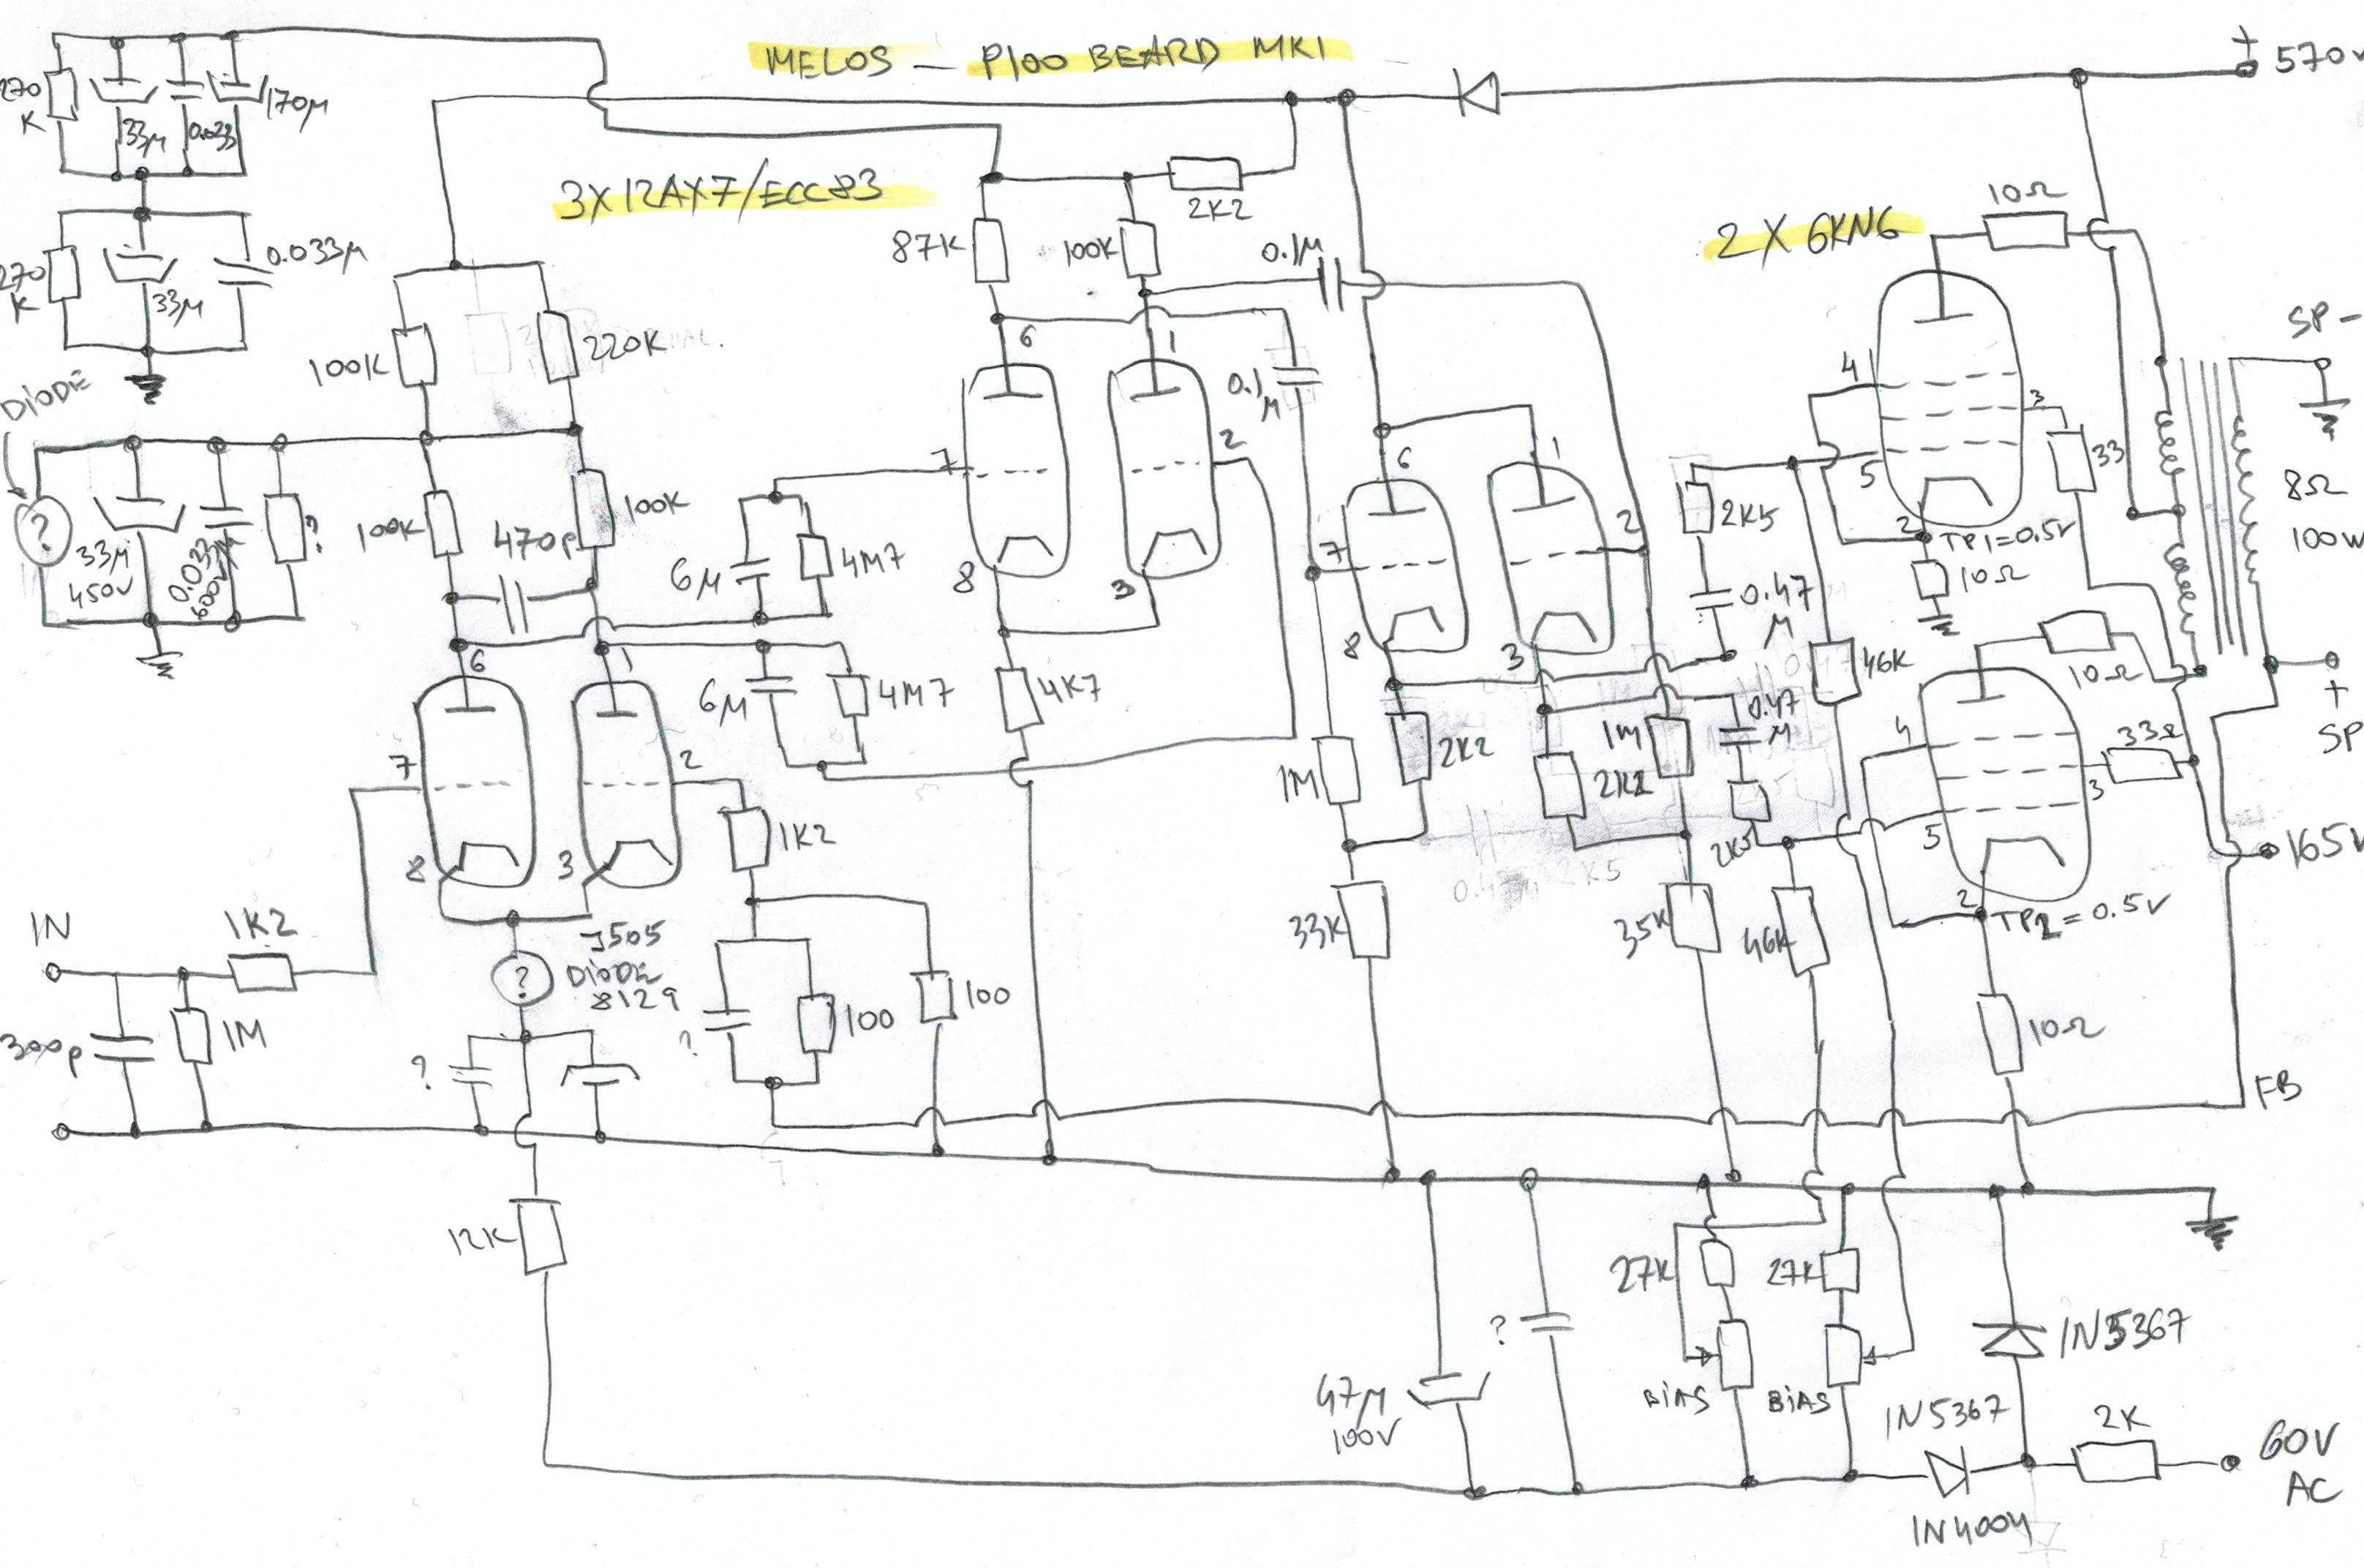 MELOS - P100 BEARD MK1
+
570V
270
K
33µ
0.033
170µ
3X12AX7/ECC83
2K2
10Ω
2 X 6KN6
87K
100K
0.1µ
0.033µ
270
K
33µ
SP-
100K
220K
6
1
4
3
DIODE
0.1
µ
2
7
6
1
33
8Ω
100W
5
?
33µ
450V
0.033µ
600V
?
100K
470p
100K
2K5
2
TP1=0.5V
6µ
4M7
8
3
7
2
10Ω
0.47
µ
6
1
8
3
46K
10Ω
+
SP
6µ
4M7
4K7
2K2
1M
0.47
µ
4
33Ω
7
2
1M
2K2
3
1K2
2K5
5
165V
8
3
IN
1K2
J505
DIODE
8129
33K
35K
46K
2
TP2=0.5V
?
100
100
10Ω
300p
1M
?
?
FB
12K
27K
27K
?
1N5367
47µ
100V
BIAS
BIAS
1N5367
2K
60V
AC
1N4004